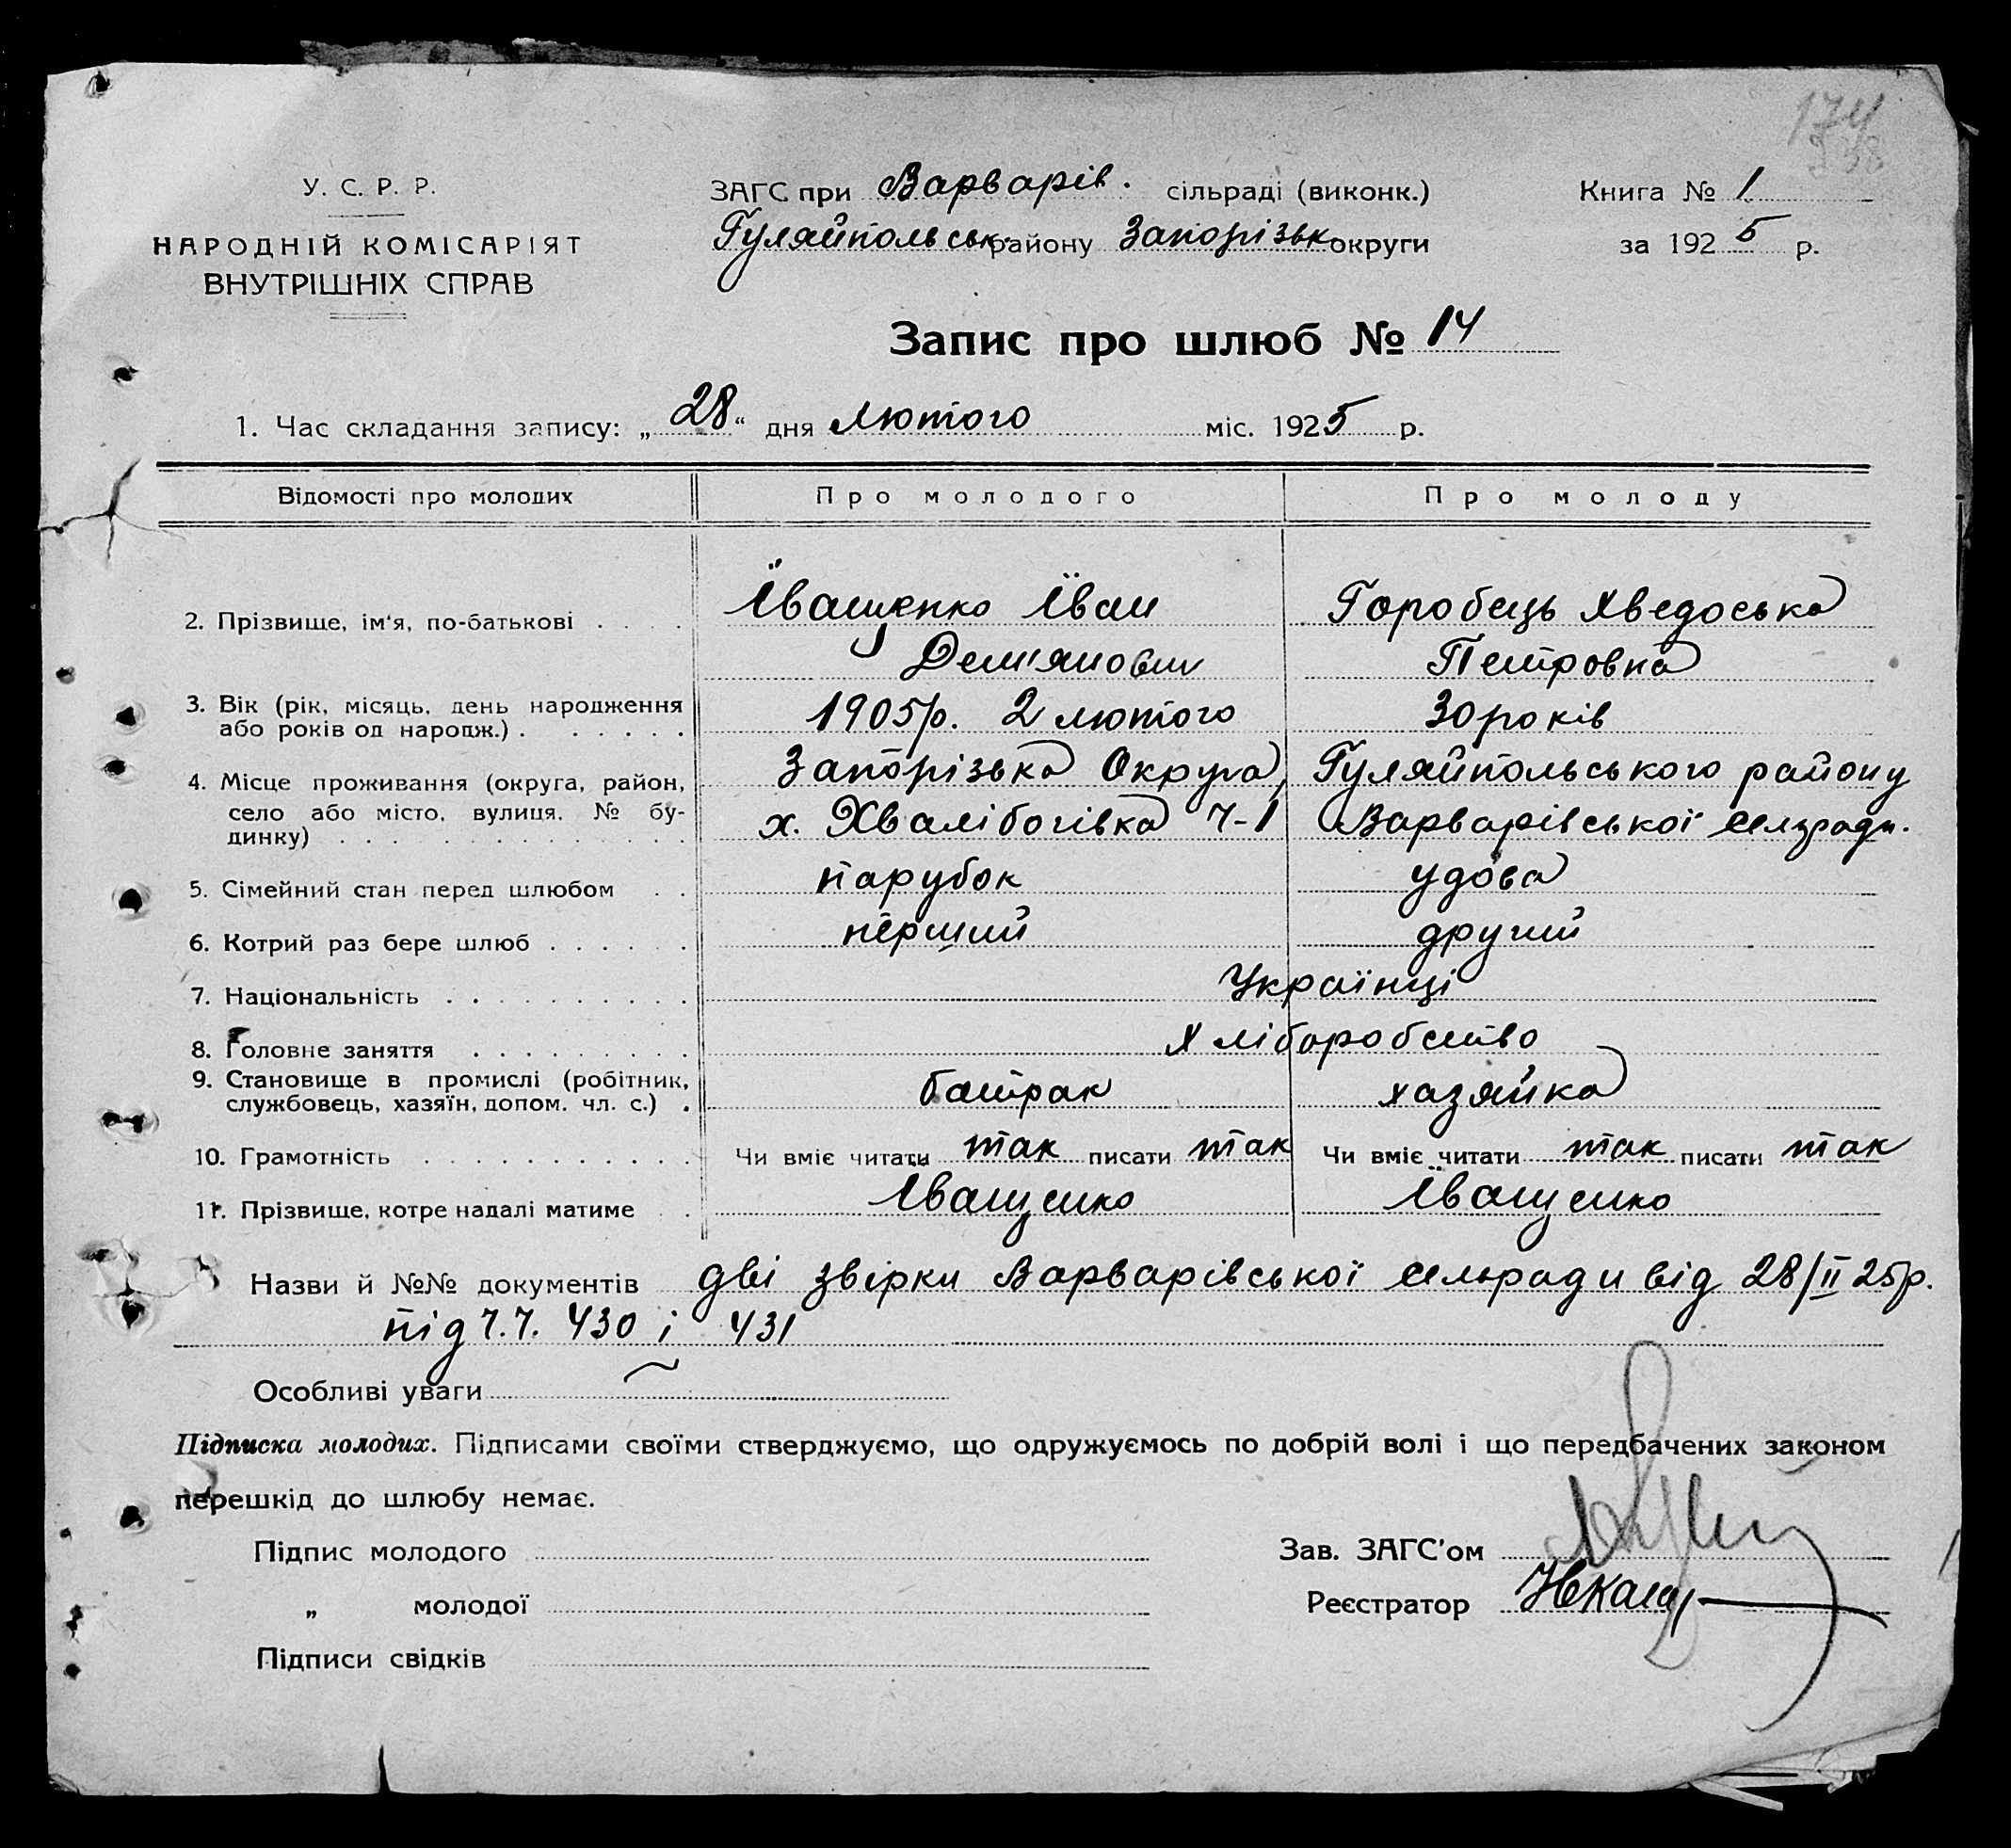 174
У. С. Р. Р.
НАРОДНІЙ КОМІСАРІЯТ
ВНУТРІШНІХ СПРАВ
ЗАГС при Варварів. сільраді (виконк.)
Гуляйпольськ. району Запорізьк округи
Книга № 1
за 1925 р.
Запис про шлюб № 14
1. Час складання запису: „28“ дня лютого міс. 1925 р.
Відомості про молодих Про молодого Про молоду
2. Прізвище, ім'я, по-батькові . . . . Іващенко Іван Горобець Хведоська
Дем'янович Петровна
3. Вік (рік, місяць, день народження 1905р. 2 лютого 30 років
або років од народж.) . . . . . .
4. Місце проживання (округа, район, Запорізька Округа, Гуляйпольського району
село або місто, вулиця, № бу- х. Хвалібогівка ч-1 Варварівської сельради.
динку) . . . . . . . . . . . . . .
5. Сімейний стан перед шлюбом . . парубок удова
6. Котрий раз бере шлюб . . . . . . перший другий
7. Національність . . . . . . . . . . Українці
8. Головне заняття . . . . . . . . . Хліборобство
9. Становище в промислі (робітник, батрак хазяйка
службовець, хазяїн, допом. чл. с.) .
10. Грамотність . . . . . . . . . . . Чи вміє читати так писати так Чи вміє читати так писати так
11. Прізвище, котре надалі матиме . . Іващенко Іващенко
Назви й №№ документів дві звірки Варварівської сельради від 28/II 25р.
під ч.ч. 430 і 431
Особливі уваги ~
Підписка молодих. Підписами своїми стверджуємо, що одружуємось по добрій волі і що передбачених законом
перешкід до шлюбу немає.
Підпис молодого
„ молодої
Підписи свідків
Зав. ЗАГС'ом
Реєстратор